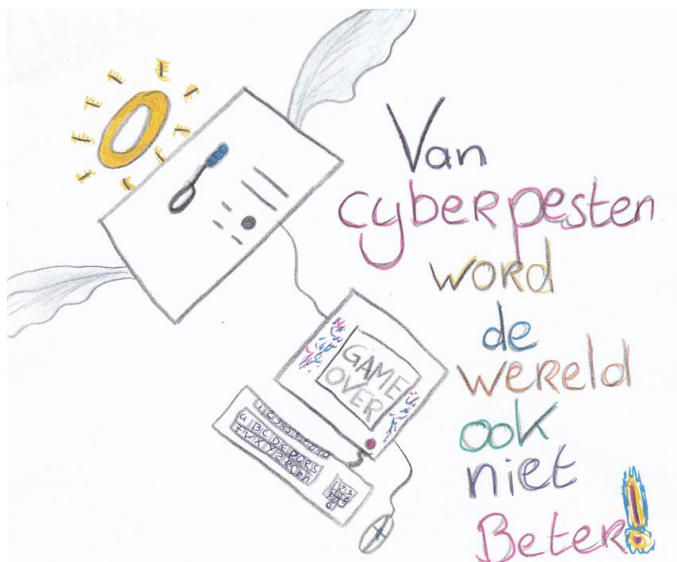 Van
cyberpesten
word
de
wereld
ook
niet
Beter!
GAME
OVER